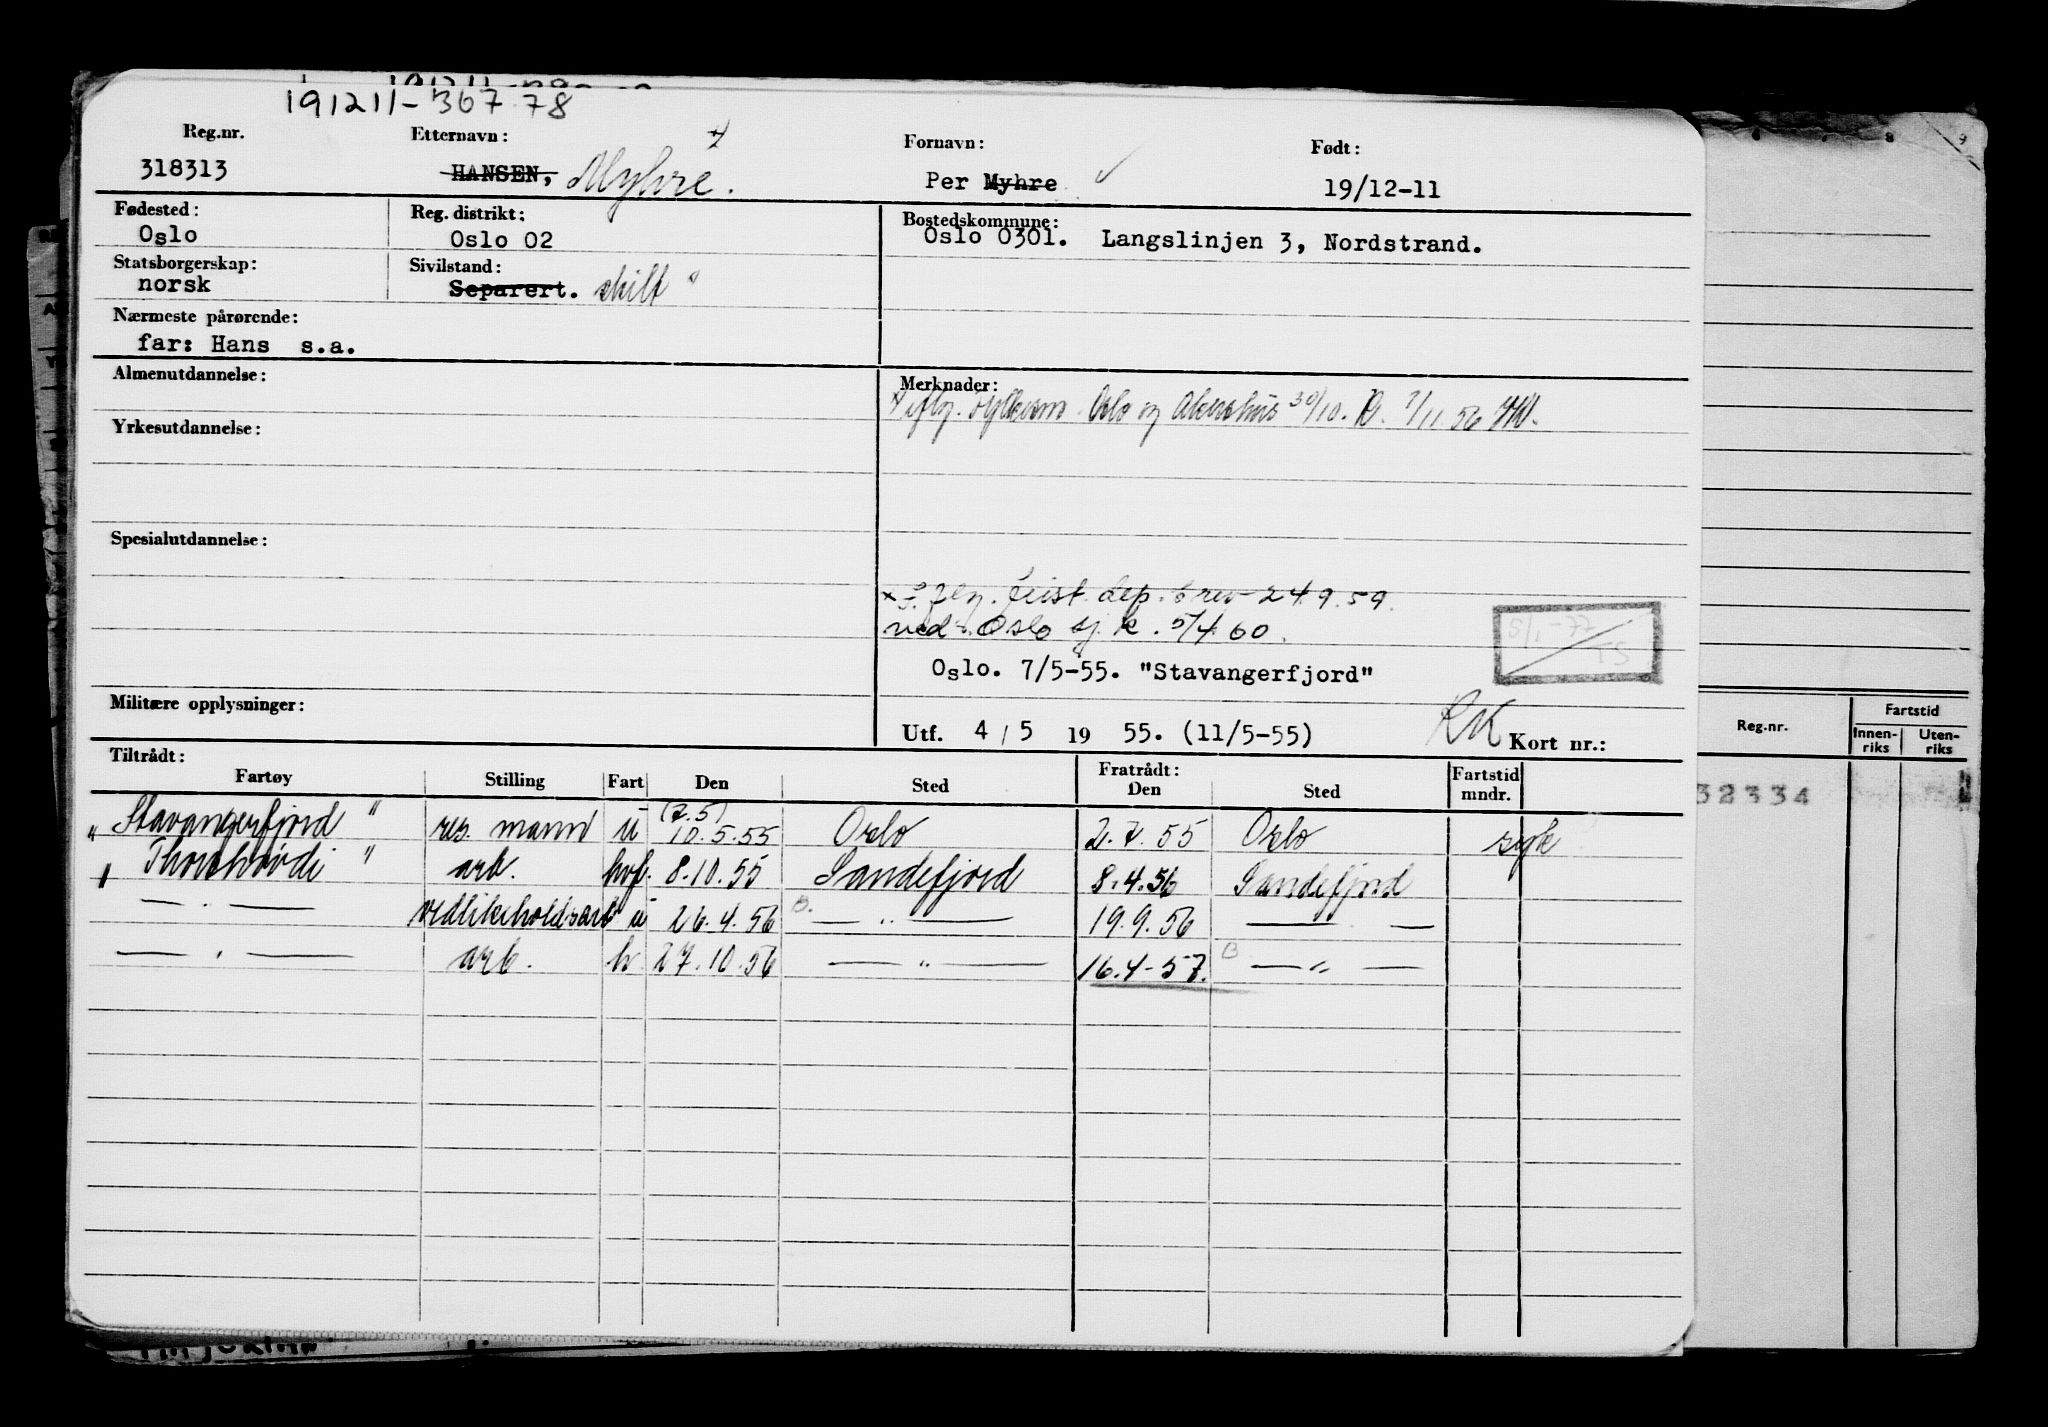 191211-36778
Reg.nr. Etternavn: Fornavn: Født:
318313 HANSEN, Myhre. Per Myhre 19/12-11
Fødested: Reg. distrikt: Bostedskommune:
Oslo Oslo 02 Oslo 0301. Langslinjen 3, Nordstrand.
Statsborgerskap: Sivilstand:
norsk Separert. skilt
Nærmeste pårørende:
far: Hans s.a.
Almenutdannelse: Merknader:
iflg. fylkesm. Oslo og Akershus 30/10. 7/11.56
Yrkesutdannelse:
Spesialutdannelse:
iflg. just. dep. brev 24.9.59.
ved Oslo sj. k. 5/4 60.
5/1-77
TS
Oslo. 7/5-55. "Stavangerfjord"
Militære opplysninger:
Utf. 4/5 1955. (11/5-55) RK Kort nr.:
Tiltrådt: Fratrådt: Fartstid
Fartøy Stilling Fart Den Sted Den Sted mndr.
(7.5)
"Stavangerfjord" res. mann u 10.5.55 Oslo 2.7.55 Oslo syk
"Thorshøvdi" arb. hvf. 8.10.55 Sandefjord 8.4.56 Sandefjord
— " — vedlikeholdsarb u 26.4.56 B. — " — 19.9.56 — —
— " — arb. h. 27.10.56 — " — 16.4-57. B — " —
Reg.nr. Fartstid
Innen-riks Uten-riks
32334